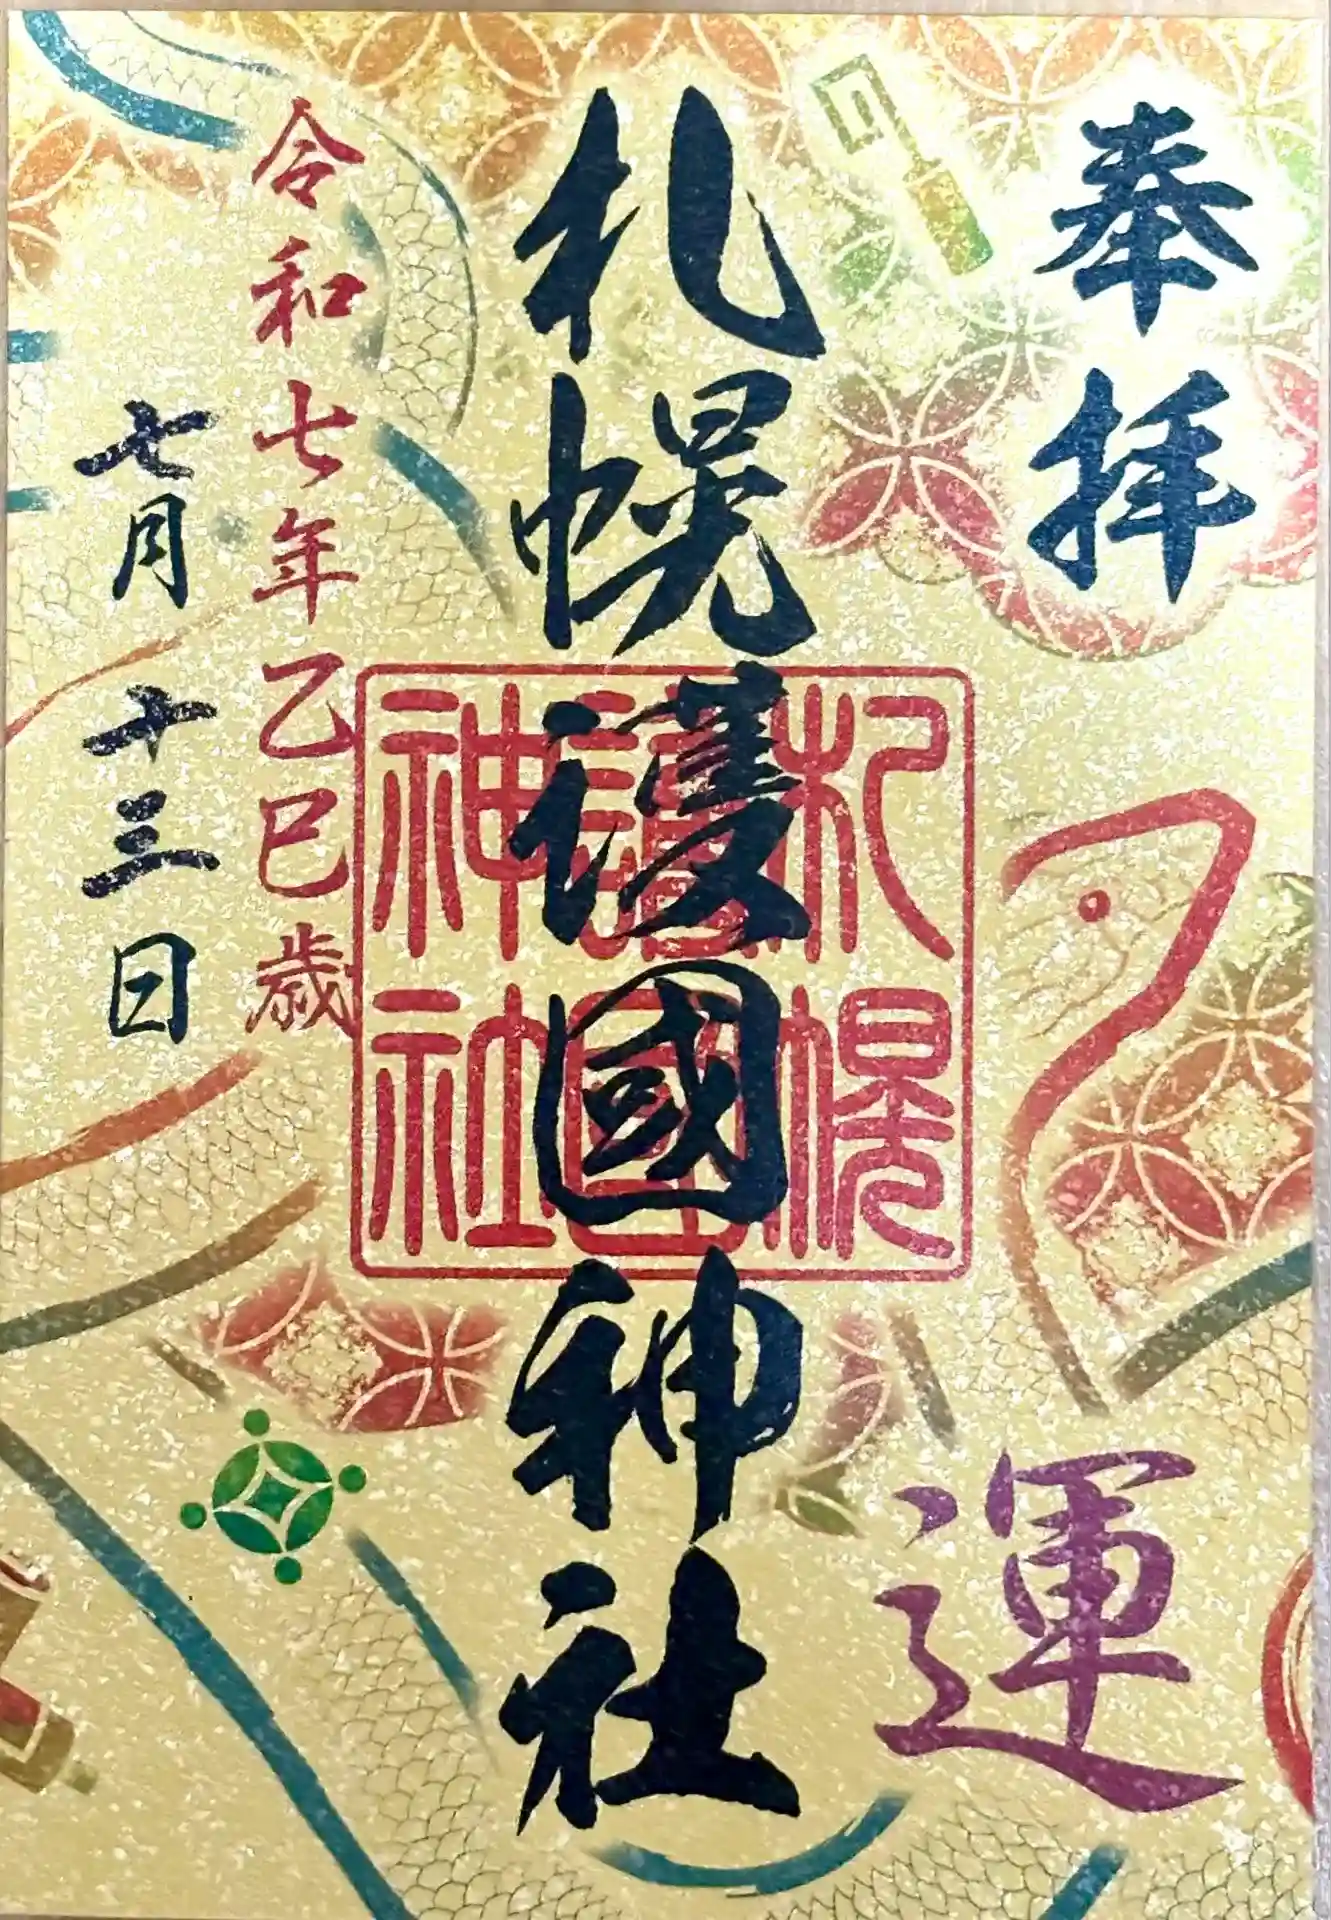 奉拝
運
札幌護國神社
札幌
護國
神社
令和七年乙巳歳
七月十三日